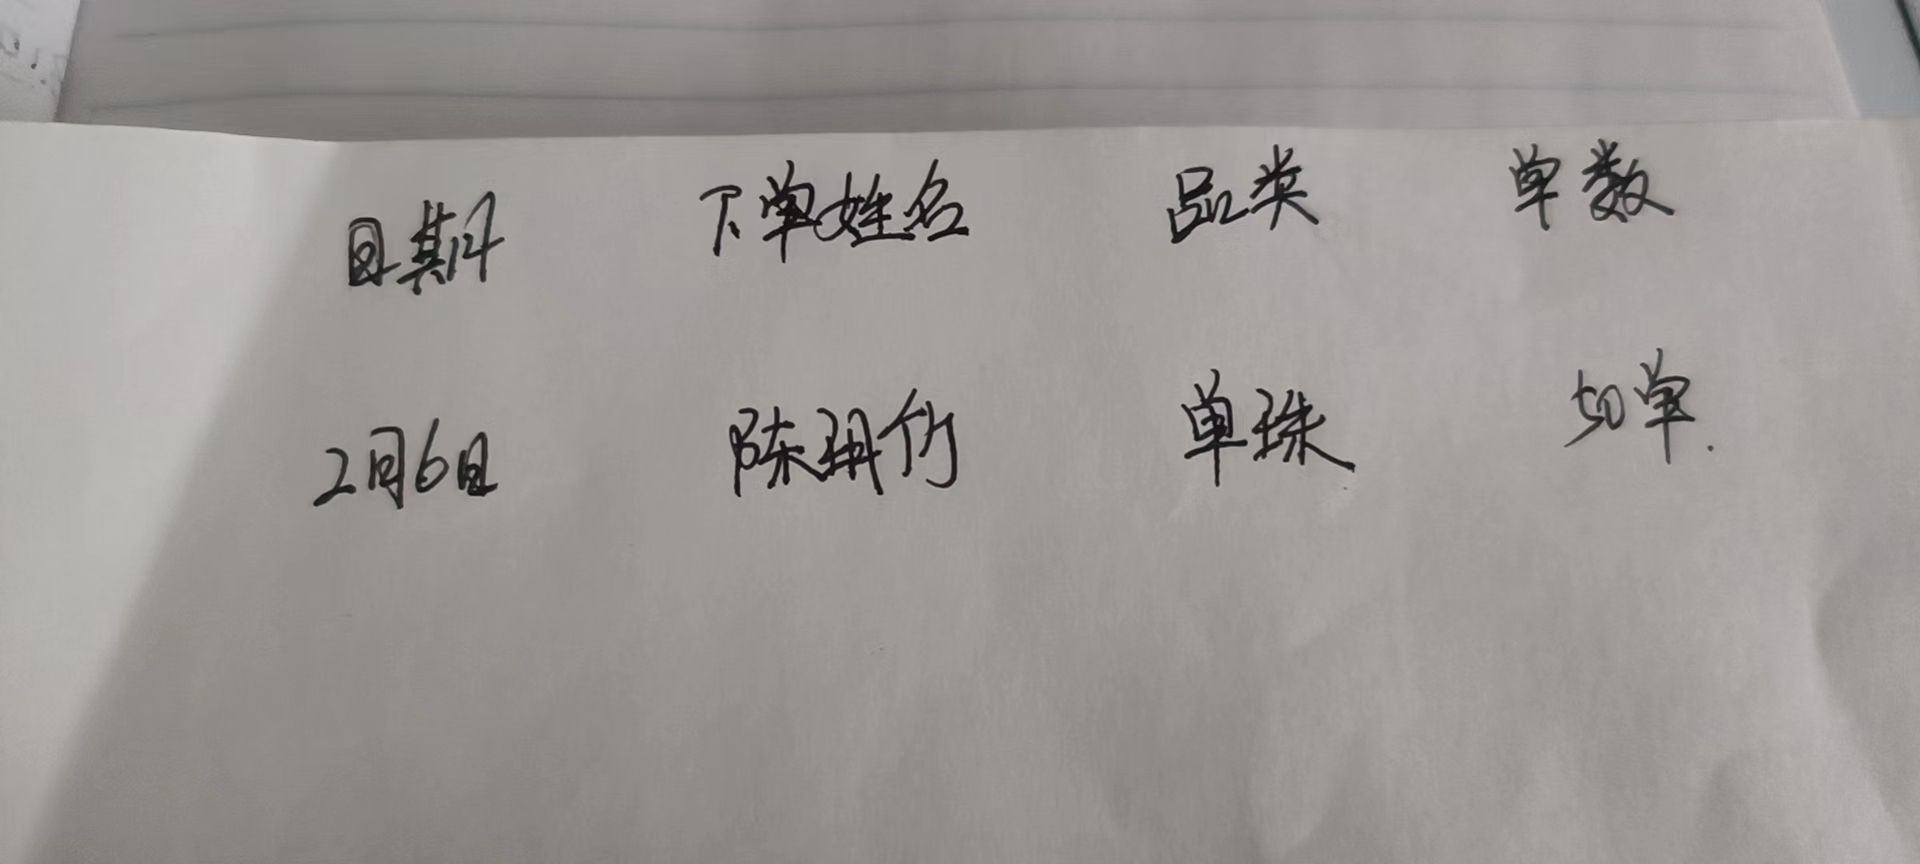 日期 下单姓名 品类 单数
2月6日 陈 单珠 50单.